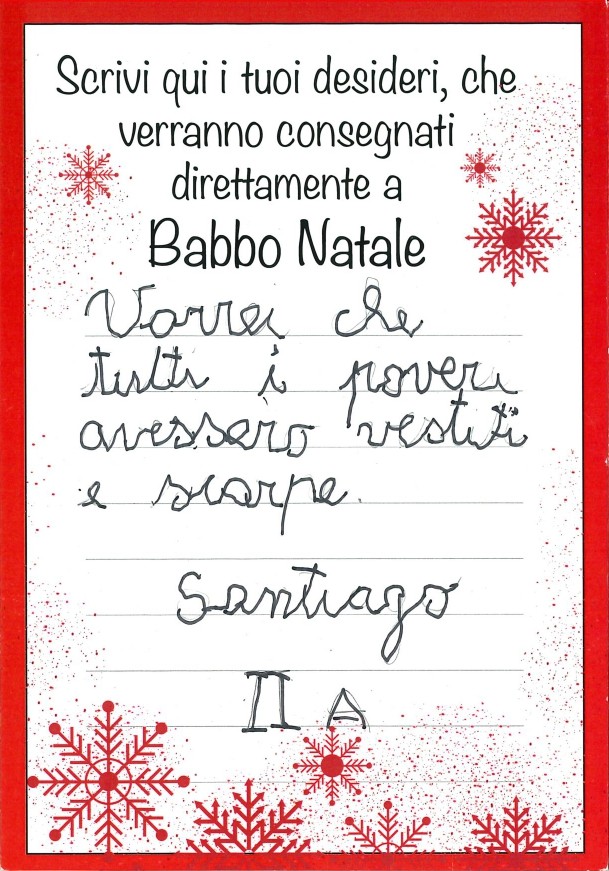 Scrivi qui i tuoi desideri, che
verranno consegnati
direttamente a
Babbo Natale
Vorrei che
tutti i poveri
avessero vestiti
e scarpe.
Santiago
II A